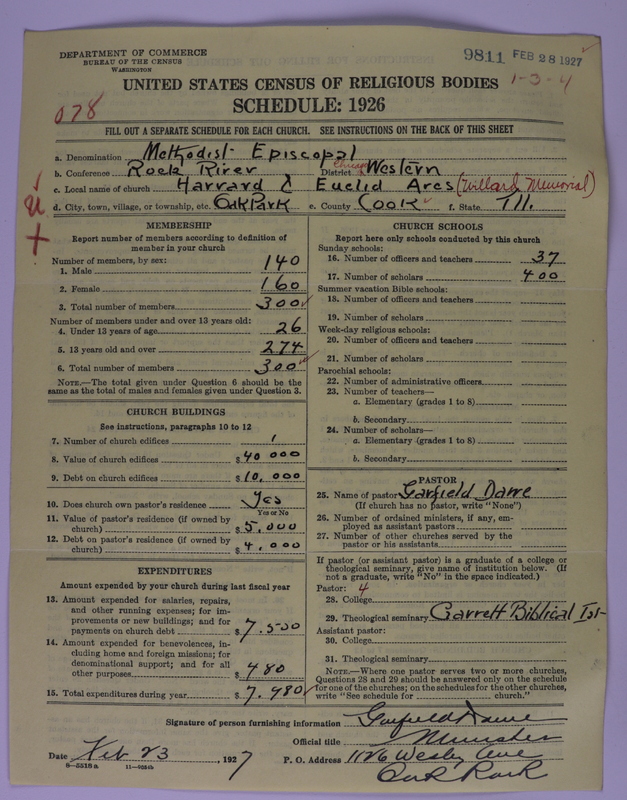 DEPARTMENT OF COMMERCE
BUREAU OF THE CENSUS
WASHINGTON
9811 FEB 28 1927
UNITED STATES CENSUS OF RELIGIOUS BODIES
1-3-4
SCHEDULE: 1926
078
FILL OUT A SEPARATE SCHEDULE FOR EACH CHURCH. SEE INSTRUCTIONS ON THE BACK OF THIS SHEET
a. Denomination Methodist Episcopal
b. Conference Rock River District Chicago Western
c. Local name of church Harvard & Euclid Aves (Willard Memorial)
d. City, town, village, or township, etc. Oak Park e. County Cook f. State Ill.
MEMBERSHIP
Report number of members according to definition of
member in your church
Number of members, by sex:
1. Male 140
2. Female 160
3. Total number of members 300
Number of members under and over 13 years old:
4. Under 13 years of age 26
5. 13 years old and over 274
6. Total number of members 300
NOTE.—The total given under Question 6 should be the
same as the total of males and females given under Question 3.
CHURCH BUILDINGS
See instructions, paragraphs 10 to 12
7. Number of church edifices 1
8. Value of church edifices $40 000
9. Debt on church edifices $10,000
10. Does church own pastor's residence Yes
Yes or No
11. Value of pastor's residence (if owned by
church) $5,000
12. Debt on pastor's residence (if owned by
church) $4,000
EXPENDITURES
Amount expended by your church during last fiscal year
13. Amount expended for salaries, repairs,
and other running expenses; for im-
provements or new buildings; and for
payments on church debt $7.500
14. Amount expended for benevolences, in-
cluding home and foreign missions; for
denominational support; and for all
other purposes $480
15. Total expenditures during year $7.980
CHURCH SCHOOLS
Report here only schools conducted by this church
Sunday schools:
16. Number of officers and teachers 37
17. Number of scholars 400
Summer vacation Bible schools:
18. Number of officers and teachers
19. Number of scholars
Week-day religious schools:
20. Number of officers and teachers
21. Number of scholars
Parochial schools:
22. Number of administrative officers
23. Number of teachers—
a. Elementary (grades 1 to 8)
b. Secondary
24. Number of scholars—
a. Elementary (grades 1 to 8)
b. Secondary
PASTOR
25. Name of pastor Garfield Dawe
(If church has no pastor, write "None")
26. Number of ordained ministers, if any, em-
ployed as assistant pastors
27. Number of other churches served by the
pastor or his assistants
If pastor (or assistant pastor) is a graduate of a college or
theological seminary, give name of institution below. (If
not a graduate, write "No" in the space indicated.)
Pastor: 4
28. College
29. Theological seminary Garrett Biblical Ist-
Assistant pastor:
30. College
31. Theological seminary
NOTE.—Where one pastor serves two or more churches,
Questions 28 and 29 should be answered only on the schedule
for one of the churches; on the schedules for the other churches,
write "See schedule for church."
Signature of person furnishing information Garfield Dawe
Official title Minister
Date Feb 23, 1927 P. O. Address 1126 Wesley Ave
6—5518a 11—9034b Oak Park